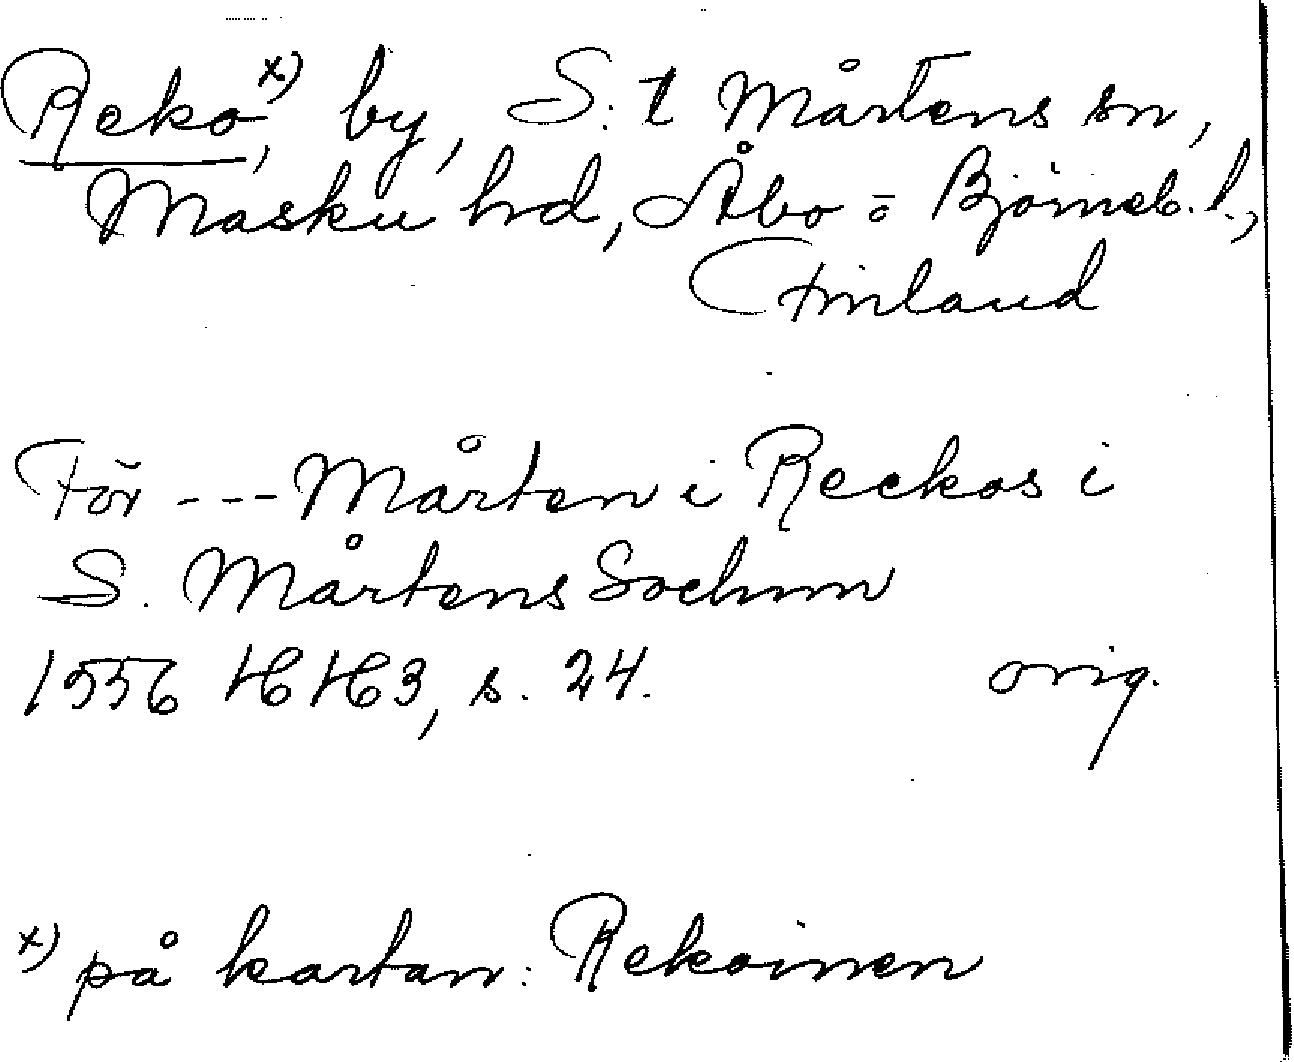 Reko x), by, S:t Mårtens sn,
Masku hd, Åbo o Björneb. l.,
Finland
För --- Mårten i Reckos i
S. Mårtens Sochnn
1556 HH3, s. 24. orig.
x) på kartan: Rekoinen